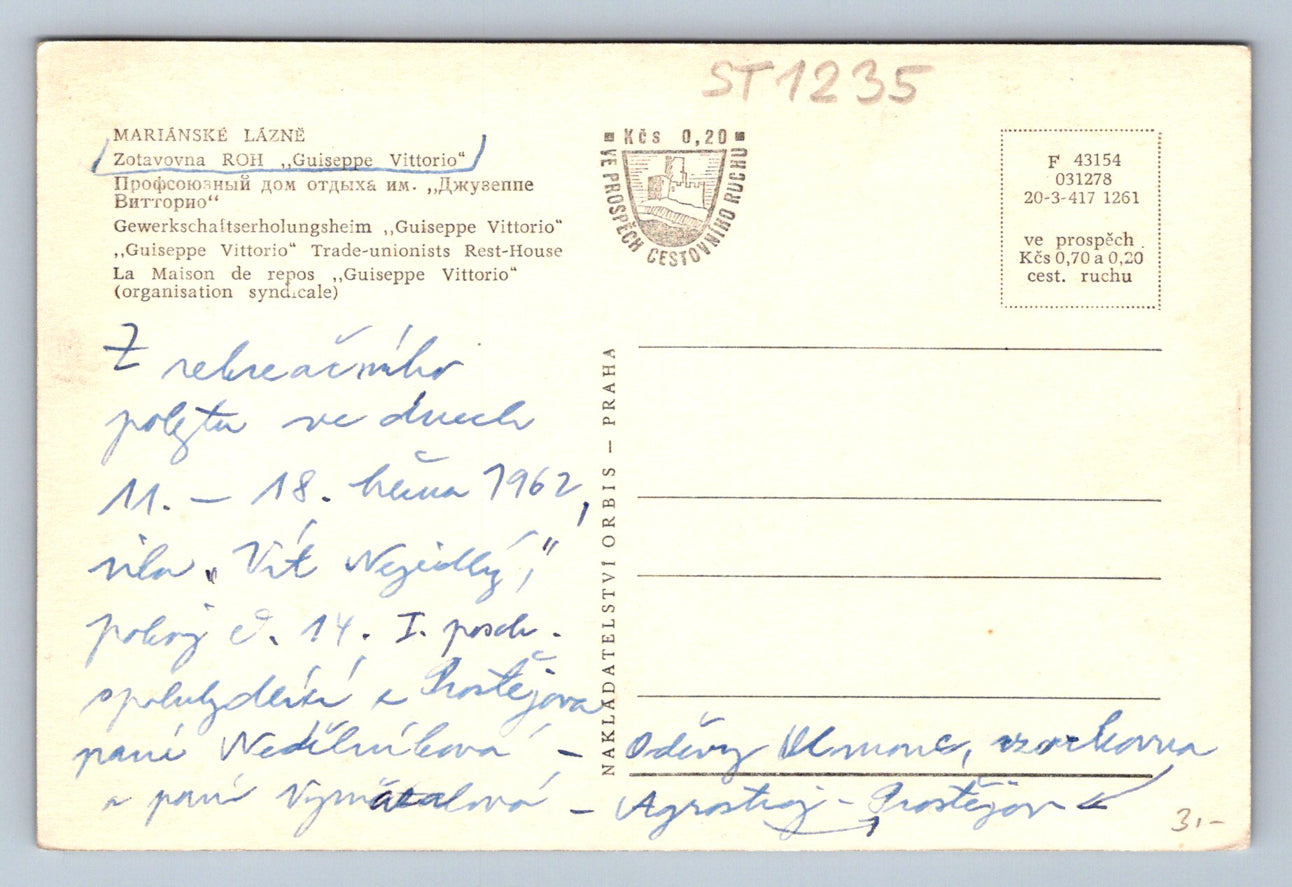 ST 1235
MARIÁNSKÉ LÁZNĚ
Zotavovna ROH „Guiseppe Vittorio“
Профсоюзный дом отдыха им. „Джузеппе
Витторио“
Gewerkschaftserholungsheim „Guiseppe Vittorio“
„Guiseppe Vittorio“ Trade-unionists Rest-House
La Maison de repos „Guiseppe Vittorio“
(organisation syndicale)
Kčs 0,20
VE PROSPĚCH CESTOVNÍHO RUCHU
F 43154
031278
20-3-417 1261
ve prospěch
Kčs 0,70 a 0,20
cest. ruchu
NAKLADATELSTVÍ ORBIS — PRAHA
Z rekreačního
pobytu ve dnech
11. – 18. března 1962,
vila „Vít Nejedlý,“
pokoj č. 14. I. posch.
spolubydlící z Prostějova
paní Nedělníková – Oděvy Olomouc, vzorkovna
a paní Vymětalová – Agrostroj – Prostějov
3,-